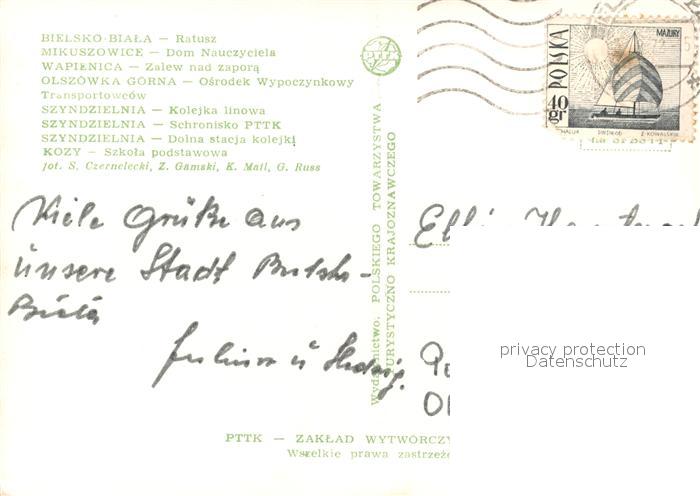 BIELSKO-BIAŁA — Ratusz
MIKUSZOWICE — Dom Nauczyciela
WAPIENICA — Zalew nad zaporą
OLSZÓWKA GÓRNA — Ośrodek Wypoczynkowy
Transportowców
SZYNDZIELNIA — Kolejka linowa
SZYNDZIELNIA — Schronisko PTTK
SZYNDZIELNIA — Dolna stacja kolejki
KOZY — Szkoła podstawowa
fot. S. Czernelecki, Z. Gamski, K. Mail, G. Russ
Viele Grüße aus
unsere Stadt Bielsko-
Biała
u Hedwig.
Wydawnictwo, POLSKIEGO TOWARZYSTWA
TURYSTYCZNO KRAJOZNAWCZEGO
POLSKA
MAZURY
40 gr
Z. KOWALSKI
Elli
privacy protection
Datenschutz
PTTK — ZAKŁAD WYTWÓRCZY
Wszelkie prawa zastrzeże